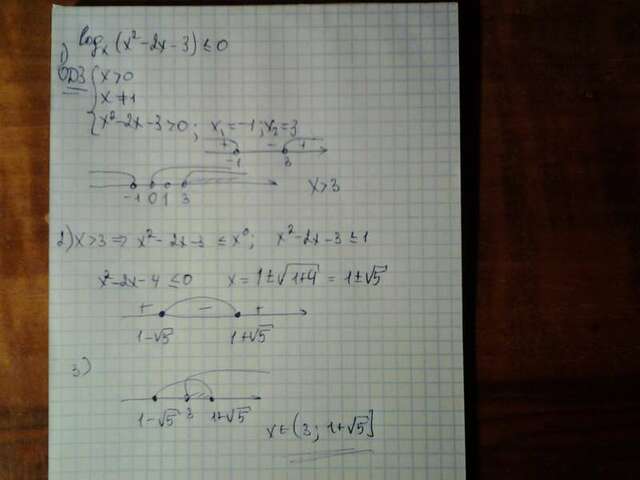 log_x (x² - 2x - 3) ≤ 0
1)
ОДЗ { x > 0
x ≠ 1
x² - 2x - 3 > 0 ; x₁ = -1 ; x₂ = 3
+ - +
-1 3
-1 0 1 3 x > 3
2) x > 3 ⇒ x² - 2x - 3 ≤ x⁰ ; x² - 2x - 3 ≤ 1
x² - 2x - 4 ≤ 0 x = 1 ± √1+4 = 1 ± √5
+ - +
1-√5 1+√5
3)
1-√5 3 1+√5
x ∈ (3 ; 1+√5]